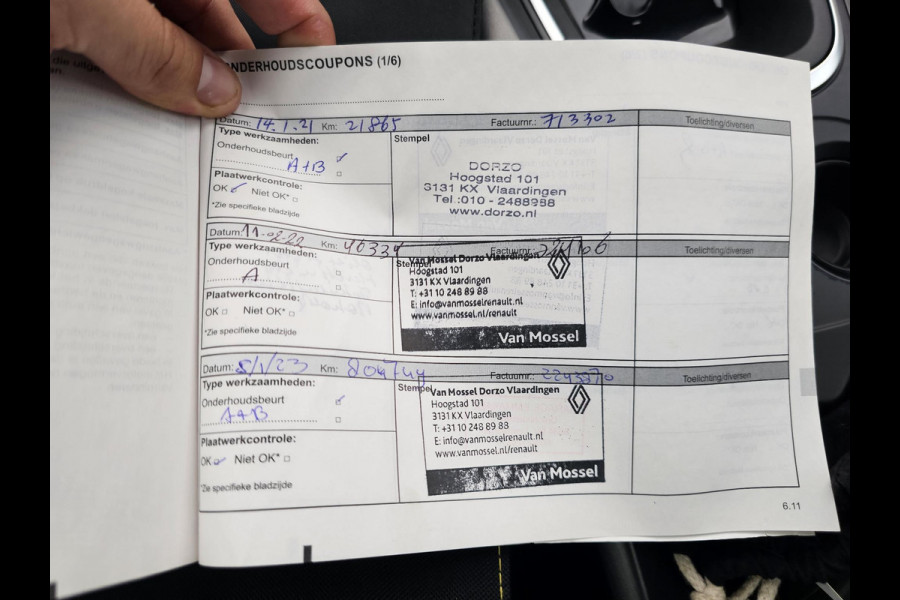 die uitge
en.
ONDERHOUDSCOUPONS (1/6)
Datum: 14.1.21 Km: 21865 Factuurnr.: 713302 Toelichting/diversen
Type werkzaamheden:
Onderhoudsbeurt ✓
A+B
Stempel
DORZO
Hoogstad 101
3131 KX Vlaardingen
Tel.:010 - 2488988
www.dorzo.nl
Plaatwerkcontrole:
OK ✓ Niet OK*
*Zie specifieke bladzijde
Datum: 11-02-22 Km: Factuurnr.: Toelichting/diversen
Type werkzaamheden:
Onderhoudsbeurt
A
Stempel
Van Mossel Dorzo Vlaardingen
Hoogstad 101
3131 KX Vlaardingen
T: +31 10 248 89 88
E: info@vanmosselrenault.nl
www.vanmossel.nl/renault
Van Mossel
Plaatwerkcontrole:
OK Niet OK*
*Zie specifieke bladzijde
Datum: 5/1/23 Km: Factuurnr.: Toelichting/diversen
Type werkzaamheden:
Onderhoudsbeurt ✓
A+B
Stempel
Van Mossel Dorzo Vlaardingen
Hoogstad 101
3131 KX Vlaardingen
T: +31 10 248 89 88
E: info@vanmosselrenault.nl
www.vanmossel.nl/renault
Van Mossel
Plaatwerkcontrole:
OK ✓ Niet OK*
*Zie specifieke bladzijde
6.11